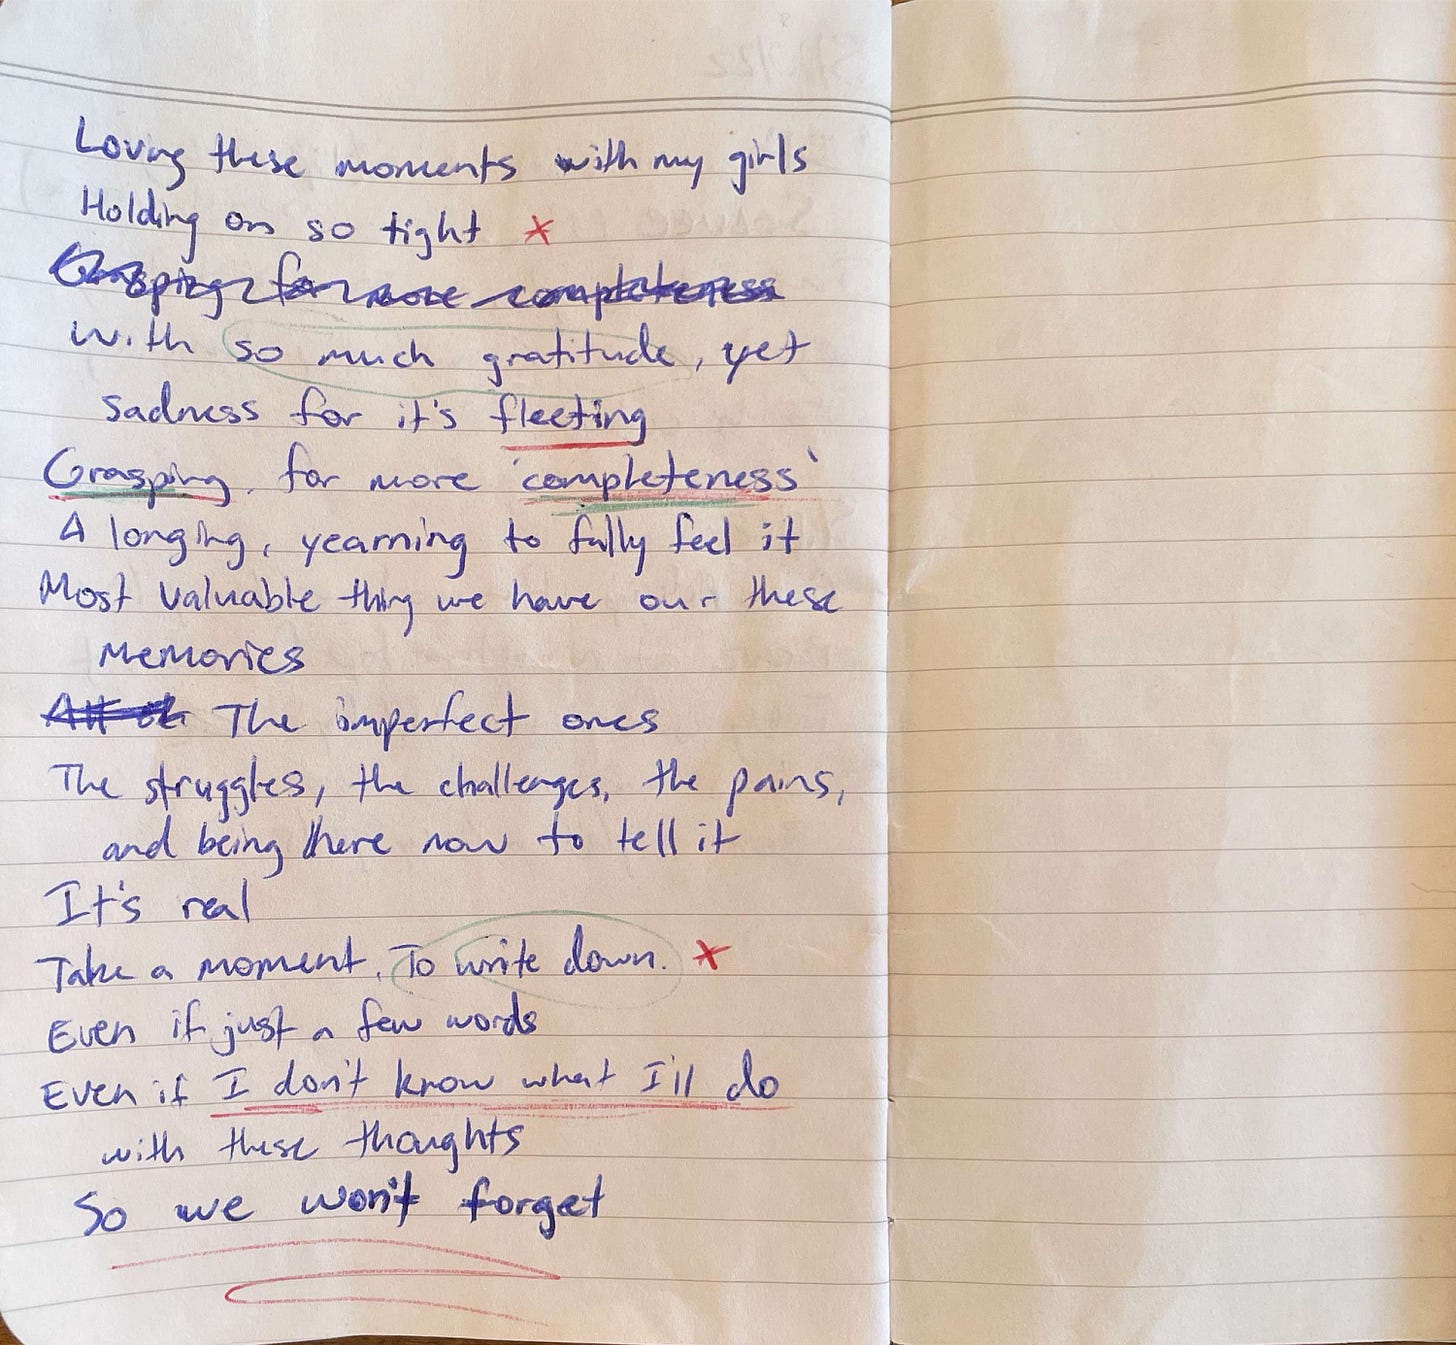 Loving these moments with my girls
Holding on so tight
Grasping for more completeness
with so much gratitude, yet
sadness for it's fleeting
Grasping, for more 'completeness'
A longing, yearning to fully feel it
Most valuable thing we have our these
memories
The imperfect ones
The struggles, the challenges, the pains,
and being there now to tell it
It's real
Take a moment. To write down.
Even if just a few words
Even if I don't know what I'll do
with these thoughts
So we won't forget